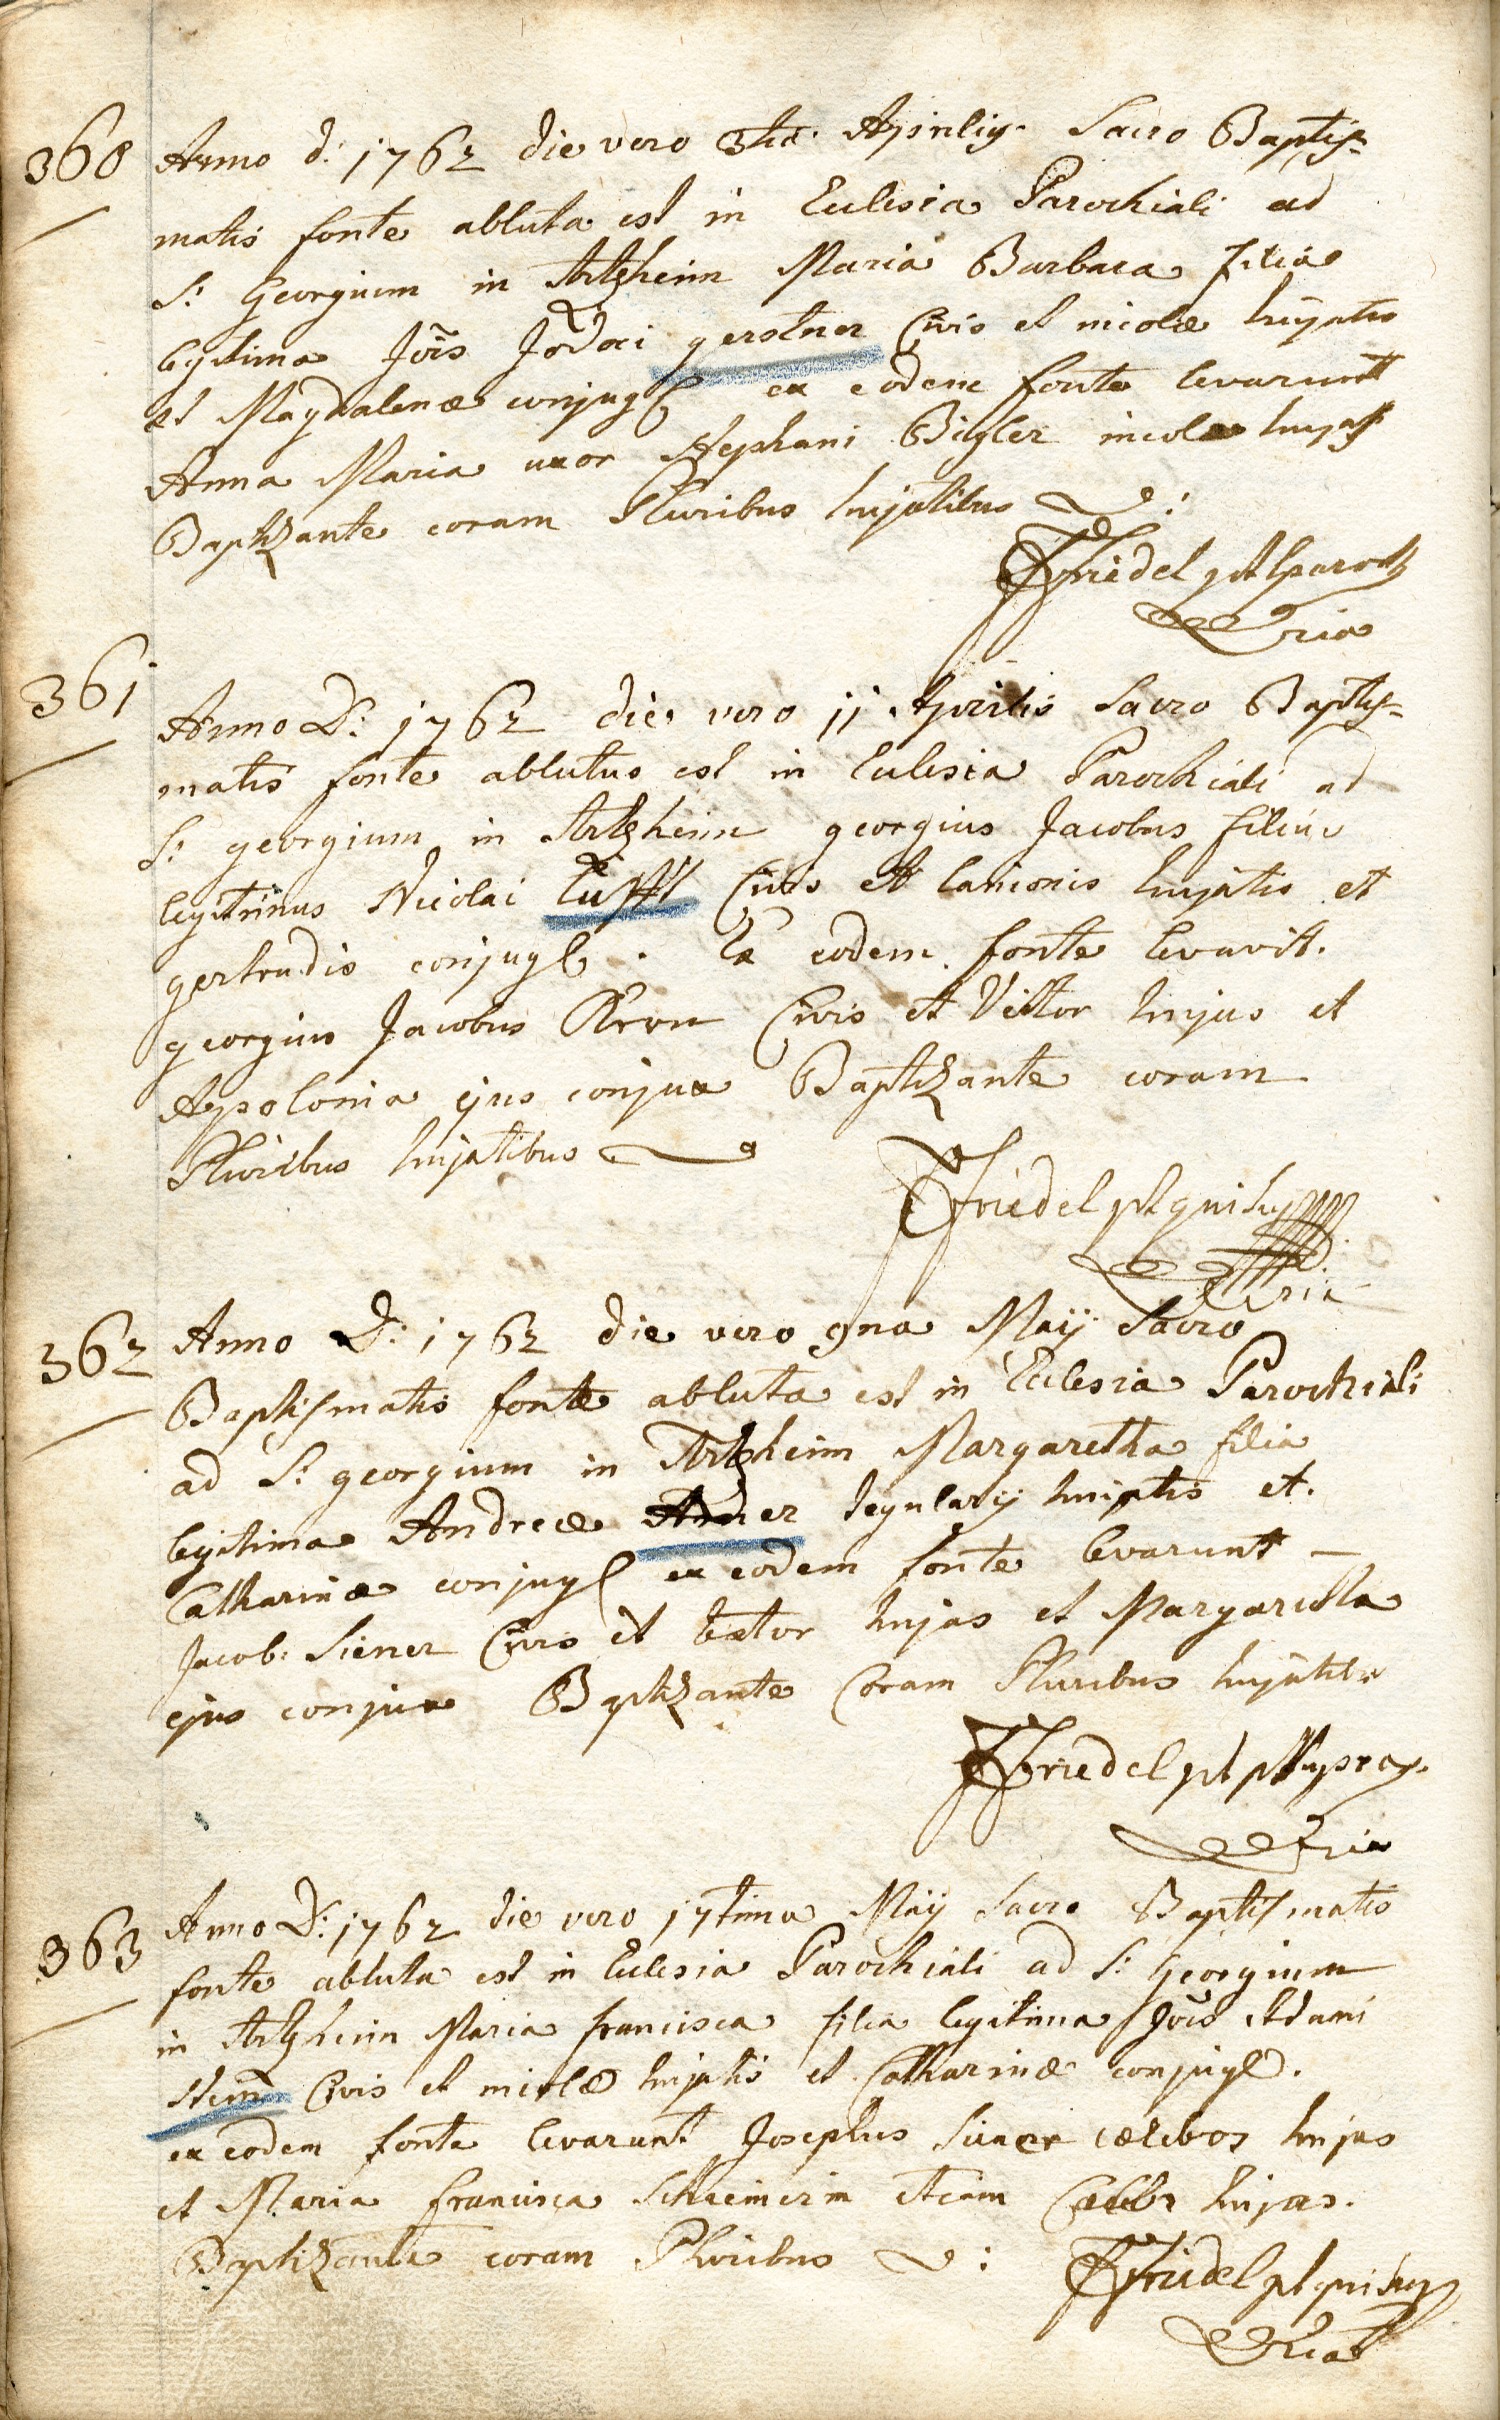 360
Anno d: 1762 die vero 3tia Aprilis Sacro Baptis=
matis fonte abluta est in Ecclesia Parochiali ad
S: Georgium in Artzheim Maria Barbara filia
legitima Jois Jodoci gerstner Civis et incolæ hujatis
et Magdalenæ conjug ex eodem fonte levarunt
Anna Maria uxor Stephani Bigler incolæ hujatis
Baptizante coram Pluribus hujatibus
Friedel pt paroch
361
Anno D: 1762 die vero 11 Aprilis Sacro Baptis=
matis fonte ablutus est in Eclesia Parochiali ad
S: georgium in Artzheim georgius Jacobus filius
legitimus Nicolai Civis et lanionis hujatis et
gertrudis conjug. Ex eodem fonte levavit
georgius Jacobus Kron Civis et Victor hujus et
Appolonia ejus conjux Baptizante coram
Pluribus hujatibus
Friedel pt
362
Anno D: 1762 die vero 9na Maij Sacro
Baptismatis fonte abluta est in Eclesia Parochiali
ad S: georgium in Artzheim Margaretha filia
legitima Andreæ tegularij hujatis et
Catharinæ conjug ex eodem fonte levarunt
Jacob: Siener Civis et textor hujas et Margaretha
ejus conjux Bptizante Coram Pluribus hujatib
Friedel pt
363
Anno D: 1762 die vero 17tima Maij Sacro Baptismatis
fonte abluta est in Eclesia Parochiali ad S: Georgium
in Artzheim Maria francisca filia legitima Jois Adami
Civis et incolæ hujatis et Catharinæ conjug.
ex eodem fonte levarunt Josephus Siener cælebs hujas
et Maria francisca etiam Cælebs hujas.
Bptizante coram Pluribus
Friedel pt